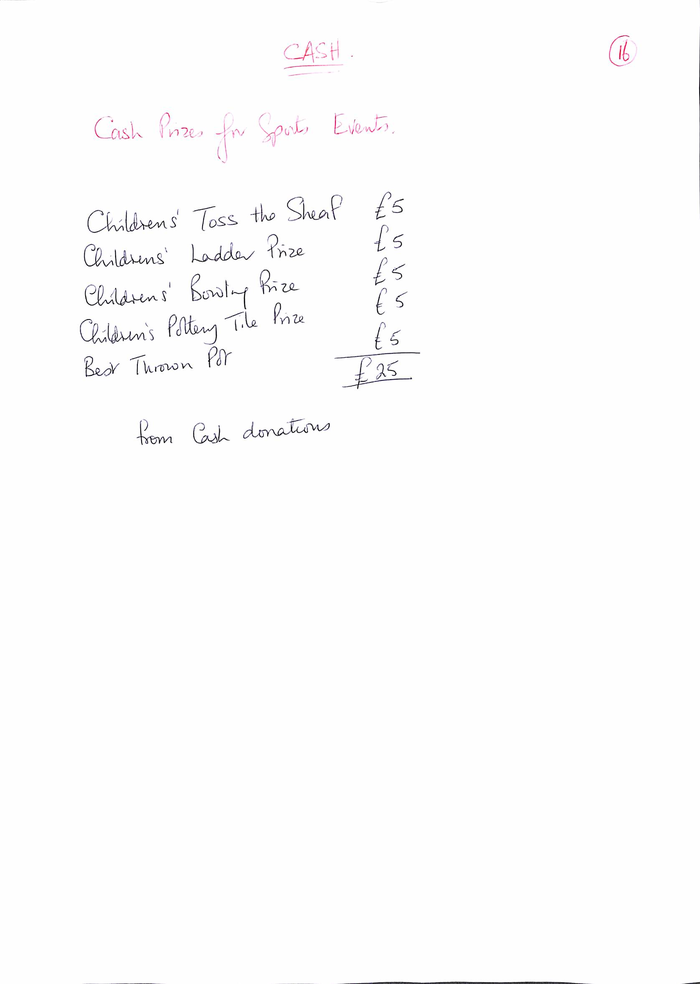 CASH.
16
Cash Prizes for Sports Events.
Childrens' Toss the Sheaf £5
Childrens' Ladder Prize £5
Childrens' Bowling Prize £5
Children's Pottery Tile Prize £5
Best Thrown Pot £5
£25
from Cash donations